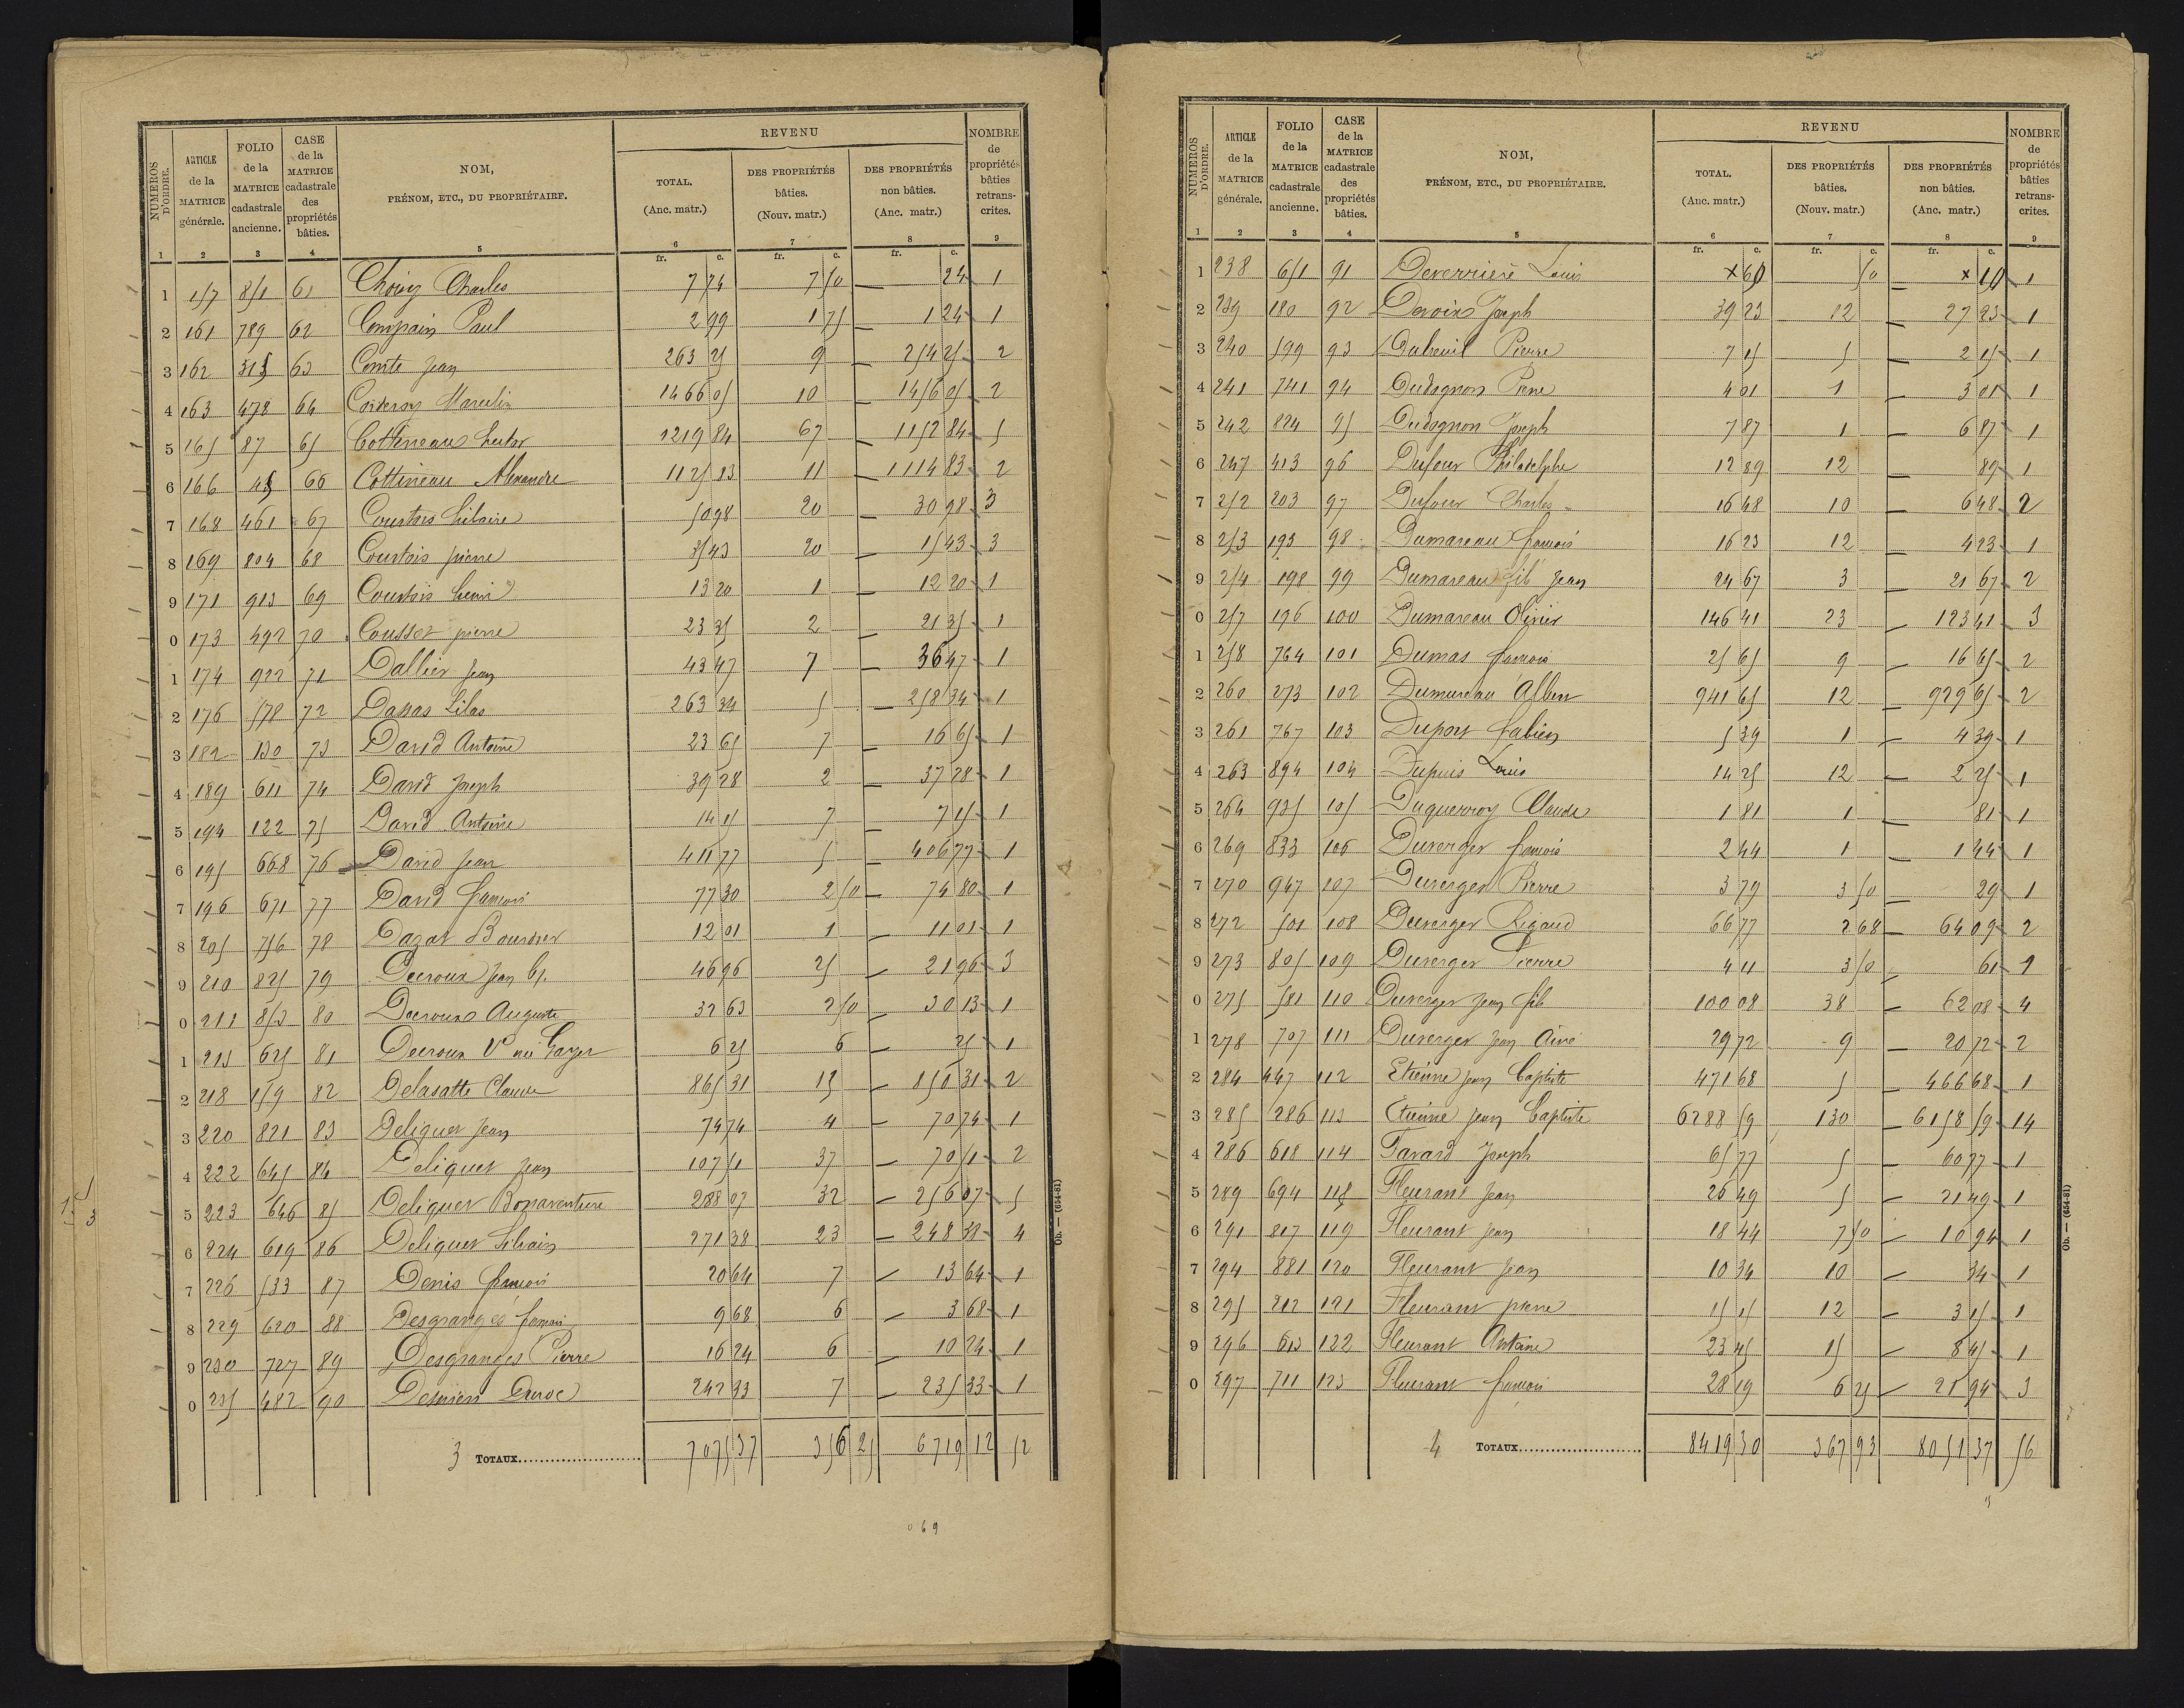 NUMÉROS D'ORDRE.
ARTICLE de la MATRICE générale.
FOLIO de la MATRICE cadastrale ancienne.
CASE de la MATRICE cadastrale des propriétés bâties.
NOM, PRÉNOM, ETC., DU PROPRIÉTAIRE.
REVENU
TOTAL. (Anc. matr.)
DES PROPRIÉTÉS bâties. (Nouv. matr.)
DES PROPRIÉTÉS non bâties. (Anc. matr.)
NOMBRE de propriétés bâties retranscrites.
1 2 3 4 5 6 7 8 9
fr. c. fr. c. fr. c.
1 157 851 61 Choisy Charles 7 74 7 50 24 1
2 161 789 62 Compain Paul 2 99 1 75 1 24 1
3 162 315 63 Comte Jean 263 25 9 254 25 2
4 163 478 64 Marcelin 1466 05 10 1456 05 2
5 165 87 65 Cottineau Hector 1219 84 67 1152 84 5
6 166 45 66 Cottineau Alexandre 1125 83 11 1114 83 2
7 168 461 67 Courtois hilaire 50 98 20 30 98 3
8 169 804 68 Courtois pierre 35 43 20 15 43 3
9 171 913 69 Courtois henri 13 20 1 12 20 1
0 173 492 70 Cousset pierre 23 35 2 21 35 1
1 174 922 71 Dallier Jean 43 47 7 36 47 1
2 176 578 72 Silas 263 34 5 258 34 1
3 182 130 73 David Antoine 23 65 7 16 65 1
4 189 611 74 David Joseph 39 28 2 37 28 1
5 194 122 75 David Antoine 14 15 7 7 15 1
6 195 668 76 David Jean 411 77 5 406 77 1
7 196 671 77 David francois 77 30 2 50 74 80 1
8 205 756 78 Dazat Bourdier 12 01 1 11 01 1
9 210 825 79 Decroux Jean 46 96 25 21 96 3
0 211 853 80 Decroux Auguste 32 63 2 50 30 13 1
1 213 625 81 Decroux Ve née 6 25 6 25 1
2 218 159 82 Delasatte Claude 865 31 15 850 31 2
3 220 821 83 Deliquet Jean 74 74 4 70 74 1
4 222 645 84 Deliquet Jean 107 51 37 70 51 2
5 223 646 85 Deliquet Bonaventure 288 07 32 256 07 5
6 224 619 86 Deliquet Silvain 271 38 23 248 38 4
7 226 533 87 Denis francois 20 64 7 13 64 1
8 229 620 88 Desgranges francois 9 68 6 3 68 1
9 230 727 89 Desgranges Pierre 16 24 6 10 24 1
0 235 482 90 242 33 7 235 33 1
3 TOTAUX 7075 37 356 25 6719 12 52
069
Ob. — (654-81)
NUMÉROS D'ORDRE.
ARTICLE de la MATRICE générale.
FOLIO de la MATRICE cadastrale ancienne.
CASE de la MATRICE cadastrale des propriétés bâties.
NOM, PRÉNOM, ETC., DU PROPRIÉTAIRE.
REVENU
TOTAL. (Anc. matr.)
DES PROPRIÉTÉS bâties. (Nouv. matr.)
DES PROPRIÉTÉS non bâties. (Anc. matr.)
NOMBRE de propriétés bâties retranscrites.
1 2 3 4 5 6 7 8 9
fr. c. fr. c. fr. c.
1 238 651 91 Deverriere Louis x 60 50 x 10 1
2 239 180 92 Devoins Joseph 39 23 12 27 23 1
3 240 599 93 Dubreuil Pierre 7 15 5 2 15 1
4 241 741 94 Dudognon Pierre 4 01 1 3 01 1
5 242 824 95 Dudognon Joseph 7 87 1 6 87 1
6 247 413 96 Dufour Philadelphe 12 89 12 89 1
7 252 203 97 Dufour Charles 16 48 10 6 48 2
8 253 193 98 Dumareau francois 16 23 12 4 23 1
9 254 198 99 Dumareau fils Jean 24 67 3 21 67 2
0 257 196 100 Dumareau Olivier 146 41 23 123 41 3
1 258 764 101 Dumas francois 25 65 9 16 65 2
2 260 273 102 Dumureau Albert 941 65 12 929 65 2
3 261 767 103 Duport fabien 5 39 1 4 39 1
4 263 894 104 Dupuis Louis 14 25 12 2 25 1
5 264 935 105 Duquerroy Claude 1 81 1 81 1
6 269 833 106 Duverger francois 2 44 1 1 44 1
7 270 947 107 Duverger Pierre 3 79 3 50 29 1
8 272 501 108 Duverger Rigaud 66 77 2 68 64 09 2
9 273 805 109 Duverger Pierre 4 11 3 50 61 1
0 275 581 110 Duverger Jean fils 100 08 38 62 08 4
1 278 707 111 Duverger Jean Ainé 29 72 9 20 72 2
2 284 447 112 Etienne Jean Baptiste 471 68 5 466 68 1
3 285 286 113 Etienne Jean Baptiste 6288 59 130 6158 59 14
4 286 618 114 Favard Joseph 65 77 5 60 77 1
5 289 694 118 Fleurant Jean 26 49 5 21 49 1
6 291 817 119 Fleurant Jean 18 44 7 50 10 94 1
7 294 881 120 Fleurant Jean 10 34 10 34 1
8 295 212 121 Fleurant pierre 15 15 12 3 15 1
9 296 613 122 Fleurant Antoine 23 45 15 8 45 1
0 297 711 123 Fleurant francois 28 19 6 25 21 94 3
4 TOTAUX 8419 30 367 93 8051 37 56
Ob. — (654-81)